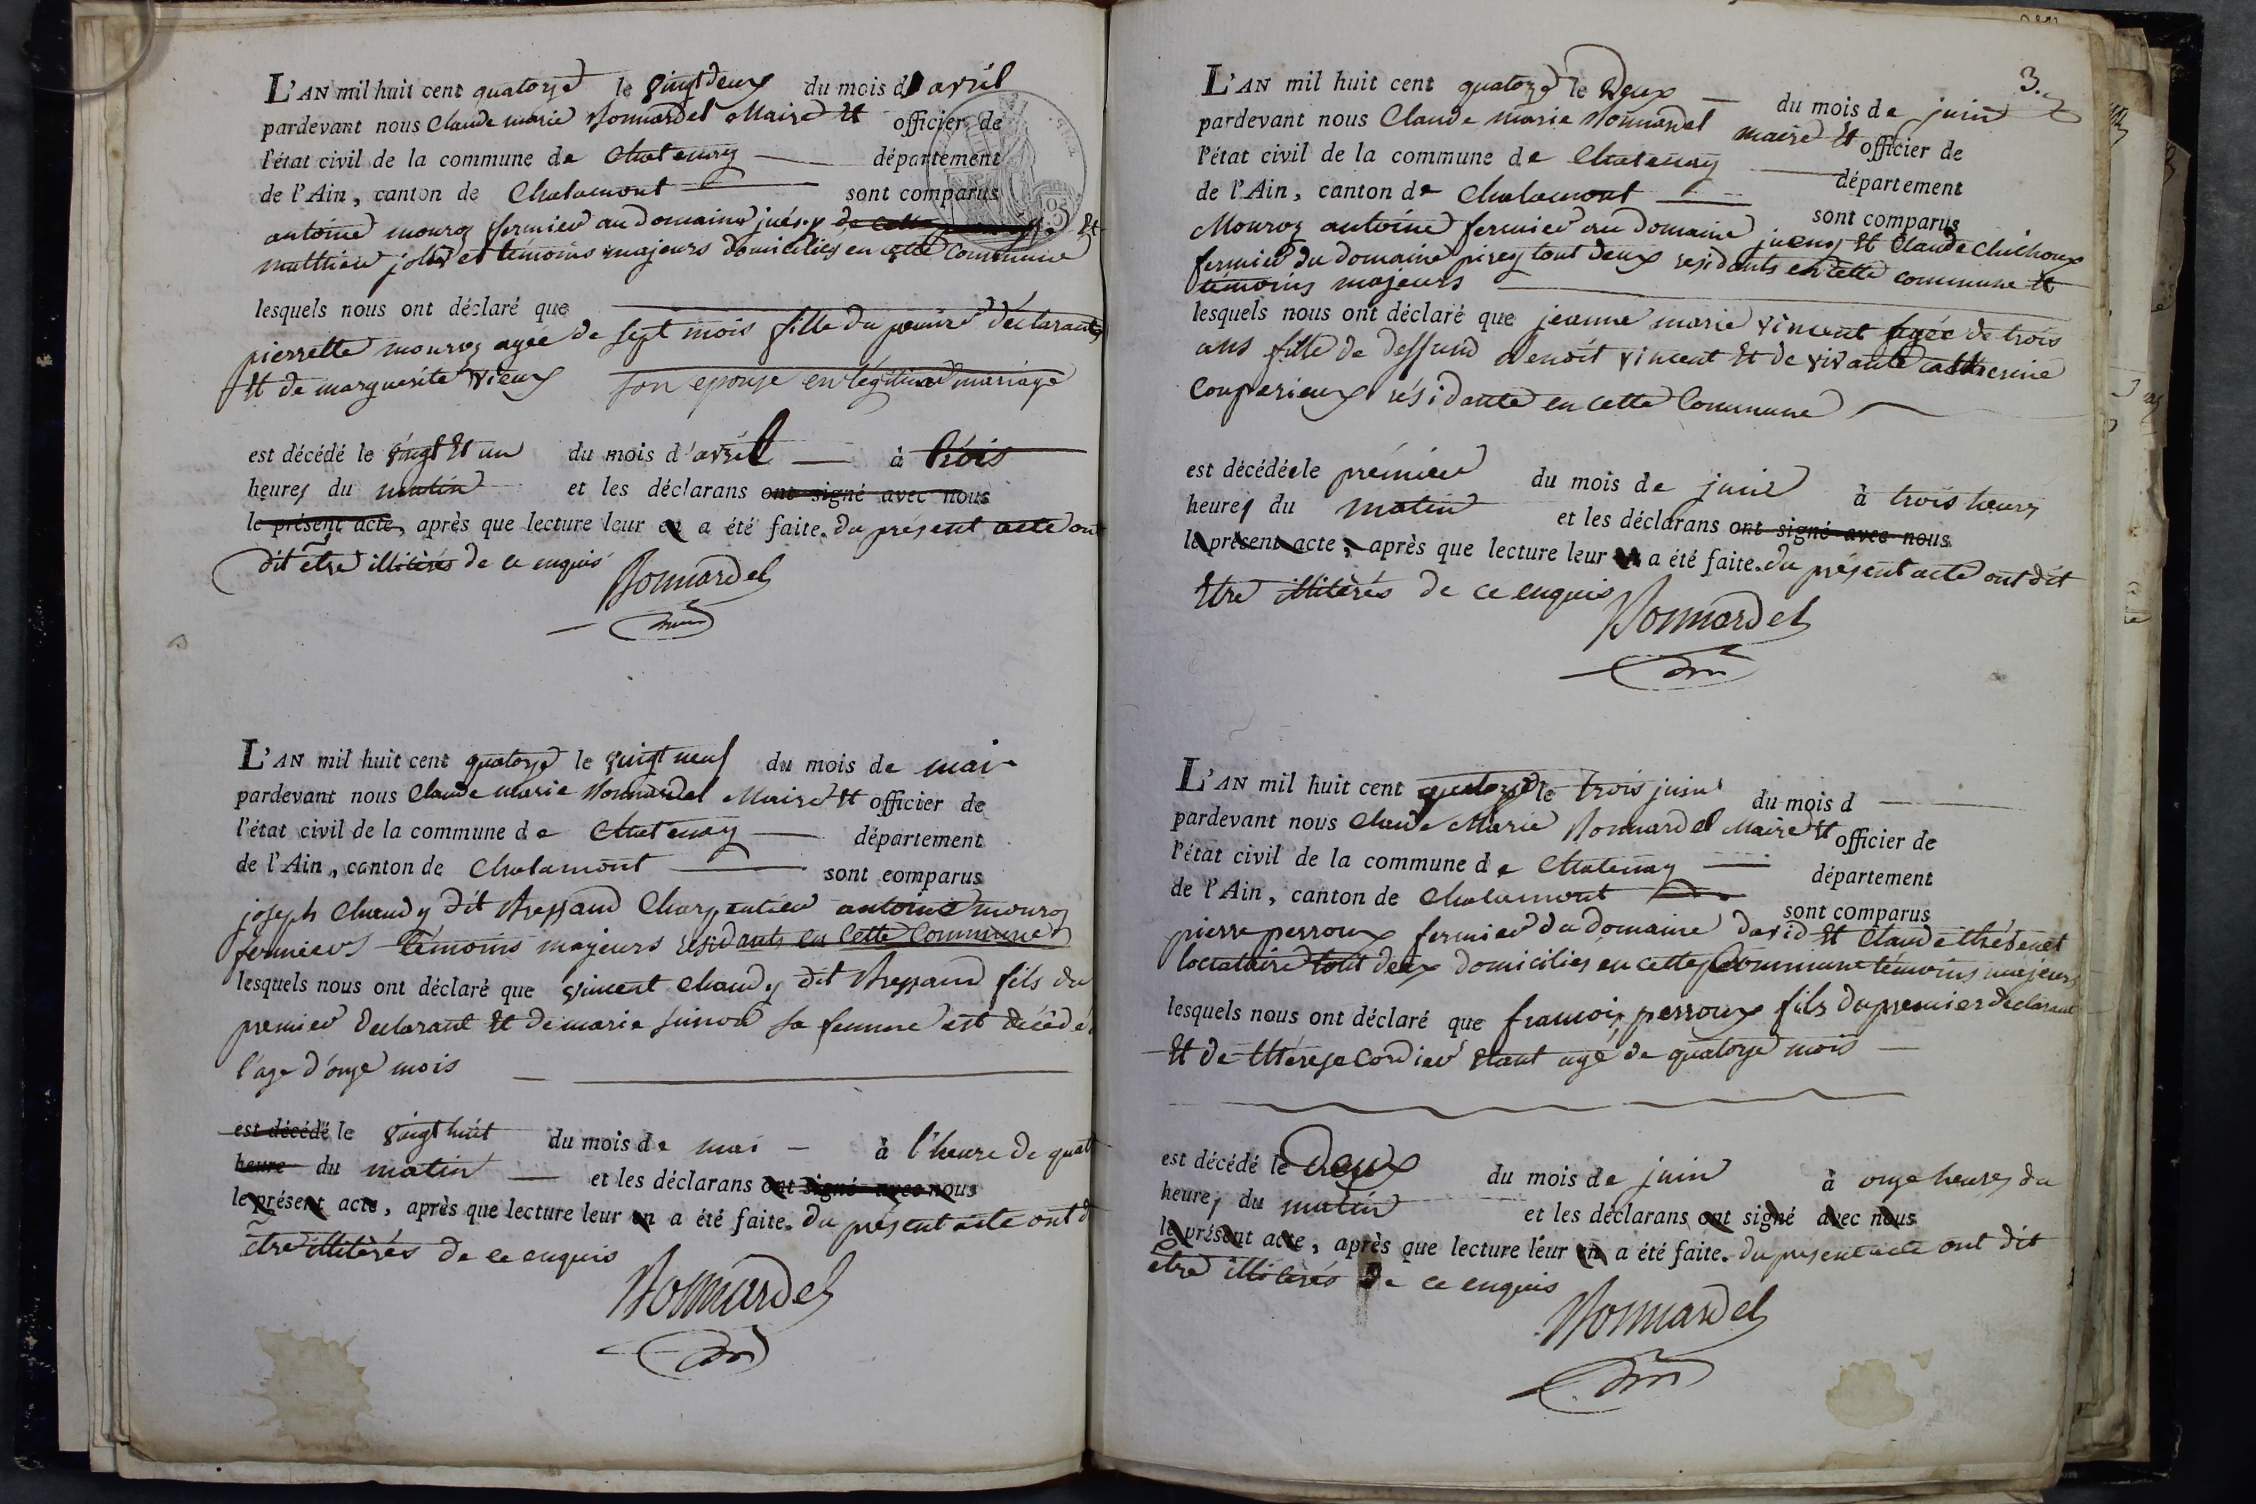 L'AN mil huit cent quatorze le vingt deux du mois d'avril
pardevant nous Claude marie Bonnardel Maire Et officier de
l'état civil de la commune de Chatenay département
de l'Ain, canton de Chalamont sont comparus
antoine mouroz fermier au domaine de cette Et
matthieu témoins majeurs domiciliés en cette Commune
lesquels nous ont déclaré que
pierrette mouroz agée de sept mois fille du premier déclarant
Et de marguerite vieux son epouse en légitime mariage
est décédé le vingt Et un du mois d'avril à trois
heures du matin et les déclarans ont signé avec nous
le présent acte, après que lecture leur en a été faite. du présent acte ont
dit être illitérés de ce enquis
Bonnardel
L'AN mil huit cent quatorze le vingt neuf du mois de mai
pardevant nous Claude marie Bonnardel Maire Et officier de
l'état civil de la commune de Chatenay département
de l'Ain, canton de Chalamont sont comparus
joseph Chaudy dit Bressand Charpentier antoine mouroz
fermier témoins majeurs residants en Cette Commune
lesquels nous ont déclaré que vincent Chaudy dit Bressand fils du
premier declarant Et de marie sa femme est décédé
l'age d'onze mois
est décédé le vingt huit du mois de mai à l'heure de quat
heure du matin et les déclarans ont signé avec nous
le présent acte, après que lecture leur en a été faite. du présent acte ont d
être illitérés de ce enquis
Bonnardel
3.
L'AN mil huit cent quatorze le Deux du mois de juin
pardevant nous Claude marie Bonnardel maire Et officier de
l'état civil de la commune de Chatenay département
de l'Ain, canton de Chalamont sont comparus
Mouroz antoine fermier au domaine Et Claude Chichoux
fermier du domaine pirey tout deux residants en cette commune Et
témoins majeurs
lesquels nous ont déclaré que jeanne marie vincent agée de trois
ans fille de deffund Benoit vincent Et de vivante catherine
Couperieux résidante en cette Commune
est décédée le prémier du mois de juin à trois heures
heures du matin et les déclarans ont signé avec nous
le présent acte, après que lecture leur en a été faite. du présent acte ont dit
Etre illitérés de ce enquis
Bonnardel
L'AN mil huit cent quatorze le trois juin du mois d
pardevant nous Claude Marie Bonnardel Maire Et officier de
l'état civil de la commune de Chatenay département
de l'Ain, canton de Chalamont sont comparus
pierre perroux fermier du domaine david Et Claude thévenet
locataire tout deux domiciliés en cette Commune témoins majeurs
lesquels nous ont déclaré que francois perroux fils du premier declarant
Et de thérese Cordier Etant agé de quatorze mois
est décédé le Deux du mois de juin à onze heures du
heures du matin et les déclarans ont signé avec nous
le présent acte, après que lecture leur en a été faite. du présent acte ont dit
être illitérés de ce enquis
Bonnardel